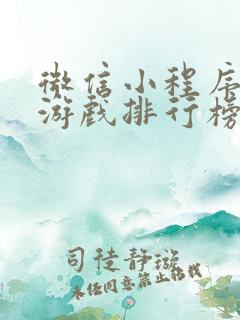 微信小程序
游戏排行榜
司徒静璇
未经同意禁止转载